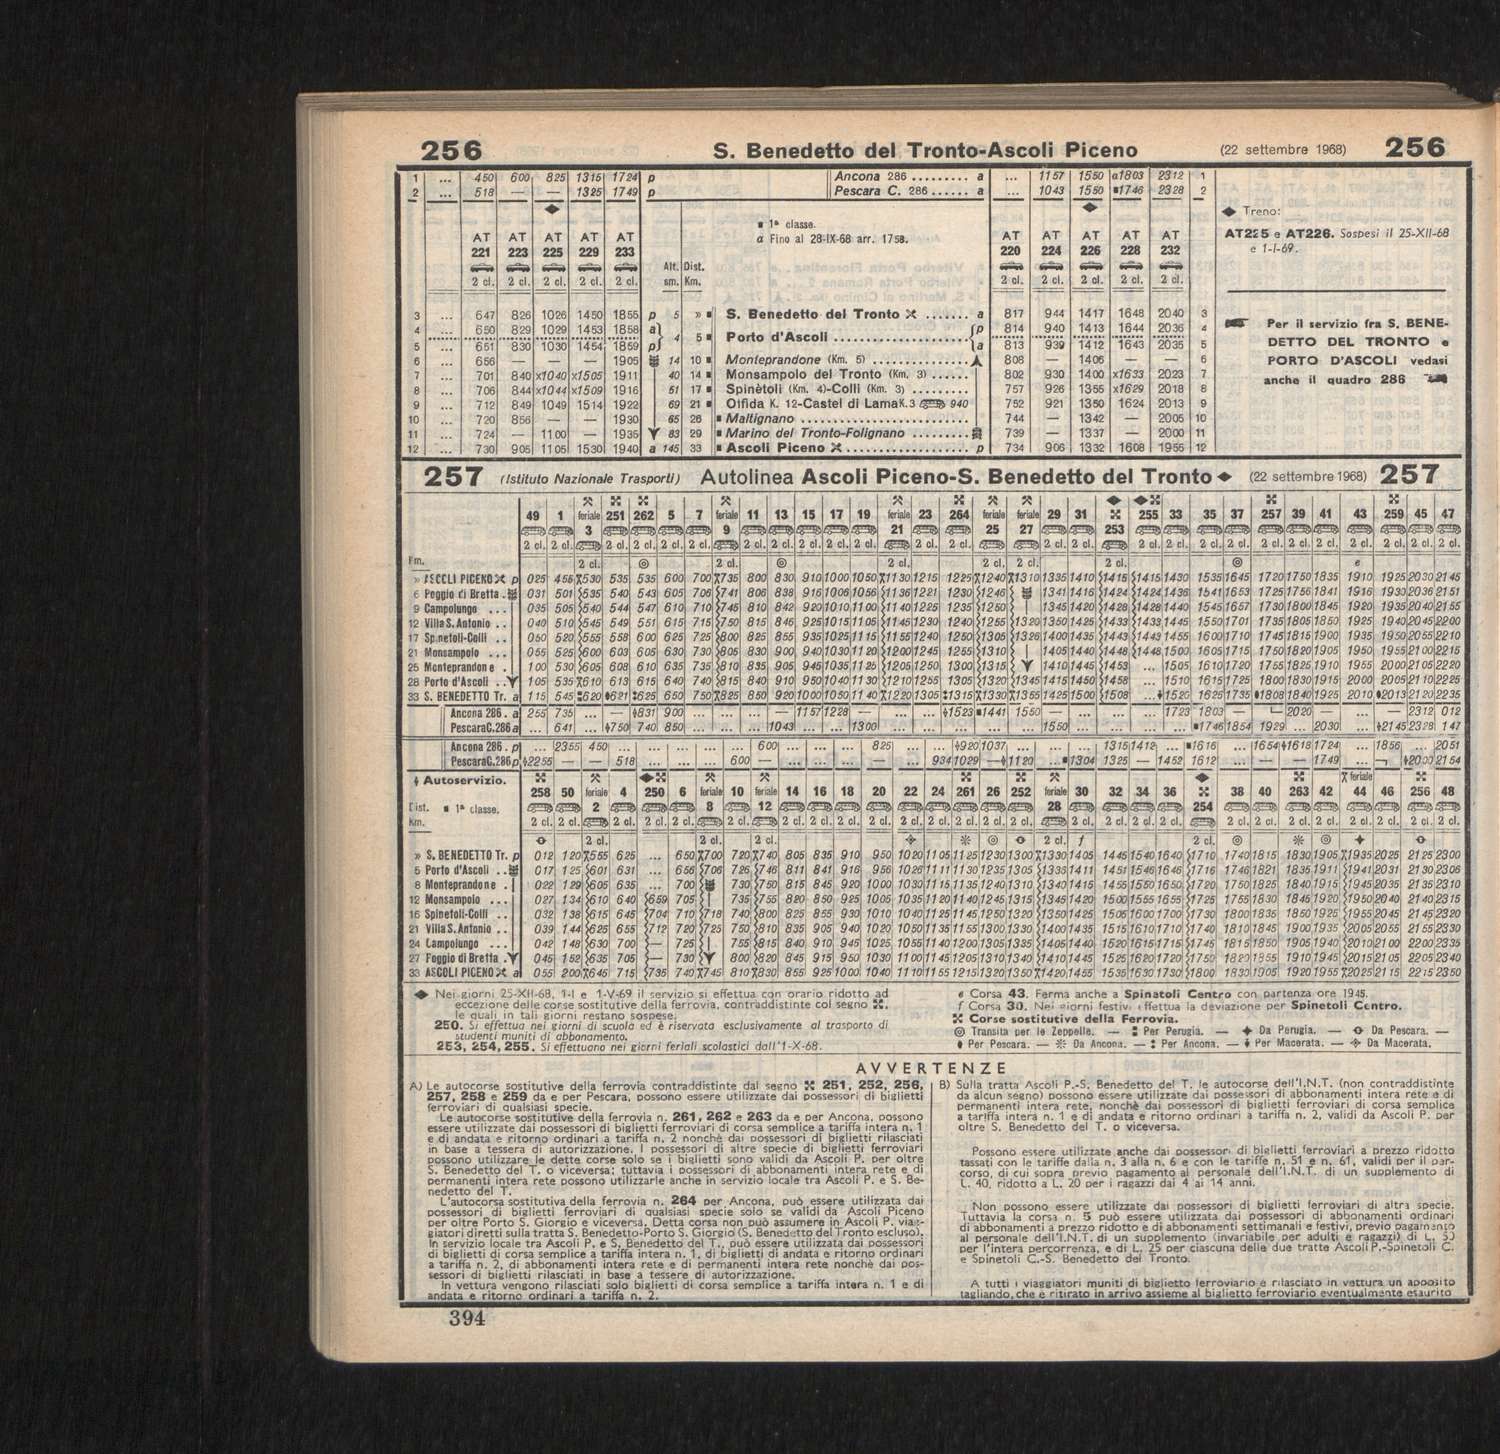 256 S. Benedetto del Tronto-Ascoli Piceno (22 settembre 1968) 256
1 ... 450 600 825 1315 1724 p Ancona 286 ......... a ... 1157 1550 α1803 2312 1
2 ... 518 — — 1325 1749 p Pescara C. 286 ...... a ... 1043 1550 ■1746 2328 2
◆ ◆
■ 1ª classe.
α Fino al 28-IX-68 arr. 1758.
AT AT AT AT AT AT AT AT AT AT
221 223 225 229 233 220 224 226 228 232
Alt. Dist.
2 cl. 2 cl. 2 cl. 2 cl. 2 cl. sm. Km. 2 cl. 2 cl. 2 cl. 2 cl. 2 cl.
3 ... 647 826 1026 1450 1855 p 5 » ■ S. Benedetto del Tronto ....... a 817 944 1417 1648 2040 3
4 ... 650 829 1029 1453 1858 a 4 5 ■ Porto d'Ascoli .................... p 814 940 1413 1644 2036 4
5 ... 651 830 1030 1454 1859 p a 813 939 1412 1643 2035 5
6 ... 656 — — — 1905 14 10 ■ Monteprandone (Km. 5) ............... 808 — 1406 — — 6
7 ... 701 840 x1040 x1505 1911 40 14 ■ Monsampolo del Tronto (Km. 3) ...... 802 930 1400 x1633 2023 7
8 ... 706 844 x1044 x1509 1916 51 17 ■ Spinètoli (Km. 4)-Colli (Km. 3) ......... 757 926 1355 x1629 2018 8
9 ... 712 849 1049 1514 1922 69 21 ■ Offida K. 12-Castel di Lama K.3 940 752 921 1350 1624 2013 9
10 ... 720 856 — — 1930 65 26 ■ Maltignano ......................... 744 — 1342 — 2005 10
11 ... 724 — 1100 — 1935 83 29 ■ Marino del Tronto-Folignano ......... 739 — 1337 — 2000 11
12 ... 730 905 1105 1530 1940 a 145 33 ■ Ascoli Piceno .................. p 734 906 1332 1608 1955 12
◆ Treno:
AT225 e AT226. Sospesi il 25-XII-68
e 1-I-69.
Per il servizio fra S. BENE-
DETTO DEL TRONTO e
PORTO D'ASCOLI vedasi
anche il quadro 286
257 (Istituto Nazionale Trasporti) Autolinea Ascoli Piceno-S. Benedetto del Tronto ◆ (22 settembre 1968) 257
49 1 feriale 3 251 262 5 7 feriale 9 11 13 15 17 19 feriale 21 23 264 feriale 25 feriale 27 29 31 253 255 33 35 37 257 39 41 43 259 45 47
Km.
» ASCOLI PICENO p 025 456 530 535 535 600 700 735 800 830 910 1000 1050 1130 1215 1225 1240 1310 1335 1410 1415 1415 1430 1535 1645 1720 1750 1835 1910 1925 2030 2145
6 Poggio di Bretta . 031 501 535 540 543 605 706 741 806 838 916 1006 1056 1136 1221 1230 1246 1341 1416 1424 1424 1436 1541 1653 1725 1756 1841 1916 1930 2036 2151
9 Campolungo ... 035 505 540 544 547 610 710 745 810 842 920 1010 1100 1140 1225 1235 1250 | 1345 1420 1428 1428 1440 1545 1657 1730 1800 1845 1920 1935 2040 2155
12 Villa S. Antonio .. 040 510 545 549 551 615 715 750 815 846 925 1015 1105 1145 1230 1240 1255 1320 1350 1425 1433 1433 1445 1550 1701 1735 1805 1850 1925 1940 2045 2200
17 Spinetoli-Colli .. 050 520 555 558 600 625 725 800 825 855 935 1025 1115 1155 1240 1250 1305 1326 1400 1435 1443 1443 1455 1600 1710 1745 1815 1900 1935 1950 2055 2210
21 Monsampolo ... 055 525 600 603 605 630 730 805 830 900 940 1030 1120 1200 1245 1255 1310 | 1405 1440 1448 1448 1500 1605 1715 1750 1820 1905 1940 1955 2100 2215
25 Monteprandone . 100 530 605 608 610 635 735 810 835 905 945 1035 1125 1205 1250 1300 1315 1410 1445 1453 ... 1505 1610 1720 1755 1825 1910 1955 2000 2105 2220
28 Porto d'Ascoli .. 105 535 610 613 615 640 740 815 840 910 950 1040 1130 1210 1255 1305 1320 1345 1415 1450 1458 ... 1510 1615 1725 1800 1830 1915 2000 2005 2110 2225
33 S. BENEDETTO Tr. a 115 545 620 621 625 650 750 825 850 920 1000 1050 1140 1220 1305 1315 1330 1355 1425 1500 1508 ... 1520 1625 1735 1808 1840 1925 2010 2013 2120 2235
Ancona 286 . a 255 735 ... — 831 900 ... ... ... — 1157 1228 — ... ... 1523 ■1441 1550 ... ... ... ... 1723 1803 — 2020 ... ... — 2312 012
Pescara C. 286 a ... 641 ... 750 740 850 ... ... ... 1043 ... ... 1300 ... ... ... ... ... 1550 ... ... ... ... ■1746 1854 1929 ... 2030 ... 2145 2328 147
Ancona 286 . p ... 2355 450 ... ... ... ... ... 600 ... ... ... 825 ... ... 920 1037 ... ... ... 1315 1412 ... ■1616 ... 1654 1618 1724 ... 1856 ... 2051
Pescara C. 286 p 2255 — — 518 ... ... ... 600 — ... ... ... — ... 934 1029 — 1120 ... ■1304 1325 — 1452 1612 ... — — 1749 ... 2000 2154
Autoservizio.
Dist. ■ 1ª classe.
Km.
258 50 feriale 2 4 250 6 feriale 8 10 feriale 12 14 16 18 20 22 24 261 26 252 feriale 28 30 32 34 36 254 38 40 263 42 feriale 44 46 256 48
» S. BENEDETTO Tr. p 012 120 555 625 ... 650 700 720 740 805 835 910 950 1020 1105 1125 1230 1300 1330 1405 1445 1540 1640 1710 1740 1815 1830 1905 1935 2025 2125 2300
5 Porto d'Ascoli .. 017 125 601 631 ... 656 706 726 746 811 841 916 956 1026 1111 1130 1235 1305 1335 1411 1451 1546 1646 1716 1746 1821 1835 1911 1941 2031 2130 2306
8 Monteprandone . 022 129 605 635 ... 700 730 750 815 845 920 1000 1030 1115 1135 1240 1310 1340 1415 1455 1550 1650 1720 1750 1825 1840 1915 1945 2035 2135 2310
12 Monsampolo ... 027 134 610 640 659 705 | 735 755 820 850 925 1005 1035 1120 1140 1245 1315 1345 1420 1500 1555 1655 1725 1755 1830 1845 1920 1950 2040 2140 2315
16 Spinetoli-Colli .. 032 138 615 645 704 710 718 740 800 825 855 930 1010 1040 1125 1145 1250 1320 1350 1425 1505 1600 1700 1730 1800 1835 1850 1925 1955 2045 2145 2320
21 Villa S. Antonio .. 039 144 625 655 712 720 725 750 810 835 905 940 1020 1050 1135 1155 1300 1330 1400 1435 1515 1610 1710 1740 1810 1845 1900 1935 2005 2055 2155 2330
24 Campolungo ... 042 148 630 700 — 725 | 755 815 840 910 945 1025 1055 1140 1200 1305 1335 1405 1440 1520 1615 1715 1745 1815 1850 1905 1940 2010 2100 2200 2335
27 Poggio di Bretta . 045 152 635 705 — 730 800 820 845 915 950 1030 1100 1145 1205 1310 1340 1410 1445 1525 1620 1720 1750 1820 1855 1910 1945 2015 2105 2205 2340
33 ASCOLI PICENO a 055 200 645 715 735 740 745 810 830 855 925 1000 1040 1110 1155 1215 1320 1350 1420 1455 1535 1630 1730 1800 1830 1905 1920 1955 2025 2115 2215 2350
◆ Nei giorni 25-XII-68, 1-I e 1-V-69 il servizio si effettua con orario ridotto ad
eccezione delle corse sostitutive della ferrovia, contraddistinte col segno ⌘,
le quali in tali giorni restano sospese.
250. Si effettua nei giorni di scuola ed è riservata esclusivamente al trasporto di
studenti muniti di abbonamento.
253, 254, 255. Si effettuano nei giorni feriali scolastici dall'1-X-68.
e Corsa 43. Ferma anche a Spinetoli Centro con partenza ore 1945.
f Corsa 30. Nei giorni festivi effettua la deviazione per Spinetoli Centro.
⌘ Corse sostitutive della Ferrovia.
◎ Transita per le Zeppelle. — Per Perugia. — Da Perugia. — Da Pescara. —
Per Pescara. — Da Ancona. — Per Ancona. — Per Macerata. — Da Macerata.
AVVERTENZE
A) Le autocorse sostitutive della ferrovia contraddistinte dal segno ⌘ 251, 252, 256,
257, 258 e 259 da e per Pescara, possono essere utilizzate dai possessori di biglietti
ferroviari di qualsiasi specie.
Le autocorse sostitutive della ferrovia n. 261, 262 e 263 da e per Ancona, possono
essere utilizzate dai possessori di biglietti ferroviari di corsa semplice a tariffa intera n. 1
e di andata e ritorno ordinari a tariffa n. 2 nonchè dai possessori di biglietti rilasciati
in base a tessera di autorizzazione. I possessori di altre specie di biglietti ferroviari
possono utilizzare le dette corse solo se i biglietti sono validi da Ascoli P. per oltre
S. Benedetto del T. o viceversa; tuttavia i possessori di abbonamenti intera rete e di
permanenti intera rete possono utilizzarle anche in servizio locale tra Ascoli P. e S. Be-
nedetto del T.
L'autocorsa sostitutiva della ferrovia n. 264 per Ancona, può essere utilizzata dai
possessori di biglietti ferroviari di qualsiasi specie solo se validi da Ascoli Piceno
per oltre Porto S. Giorgio e viceversa. Detta corsa non può assumere in Ascoli P. viag-
giatori diretti sulla tratta S. Benedetto-Porto S. Giorgio (S. Benedetto del Tronto escluso).
In servizio locale tra Ascoli P. e S. Benedetto del T., può essere utilizzata dai possessori
di biglietti di corsa semplice a tariffa intera n. 1, di biglietti di andata e ritorno ordinari
a tariffa n. 2, di abbonamenti intera rete e di permanenti intera rete nonchè dai pos-
sessori di biglietti rilasciati in base a tessere di autorizzazione.
In vettura vengono rilasciati solo biglietti di corsa semplice a tariffa intera n. 1 e di
andata e ritorno ordinari a tariffa n. 2.
B) Sulla tratta Ascoli P.-S. Benedetto del T. le autocorse dell'I.N.T. (non contraddistinte
da alcun segno) possono essere utilizzate dai possessori di abbonamenti intera rete e di
permanenti intera rete, nonchè dai possessori di biglietti ferroviari di corsa semplice
a tariffa intera n. 1 e di andata e ritorno ordinari a tariffa n. 2, validi da Ascoli P. per
oltre S. Benedetto del T. o viceversa.
Possono essere utilizzate anche dai possessori di biglietti ferroviari a prezzo ridotto
tassati con le tariffe dalla n. 3 alla n. 6 e con le tariffe n. 51 e n. 61, validi per il per-
corso, di cui sopra previo pagamento al personale dell'I.N.T. di un supplemento di
L. 40, ridotto a L. 20 per i ragazzi dai 4 ai 14 anni.
Non possono essere utilizzate dai possessori di biglietti ferroviari di altra specie.
Tuttavia la corsa n. 5 può essere utilizzata dai possessori di abbonamenti ordinari
di abbonamenti a prezzo ridotto e di abbonamenti settimanali e festivi, previo pagamento
al personale dell'I.N.T. di un supplemento (invariabile per adulti e ragazzi) di L. 50
per l'intera percorrenza, e di L. 25 per ciascuna delle due tratte Ascoli P.-Spinetoli C.
e Spinetoli C.-S. Benedetto del Tronto.
A tutti i viaggiatori muniti di biglietto ferroviario è rilasciato in vettura un apposito
tagliando, che è ritirato in arrivo assieme al biglietto ferroviario eventualmente esaurito
394